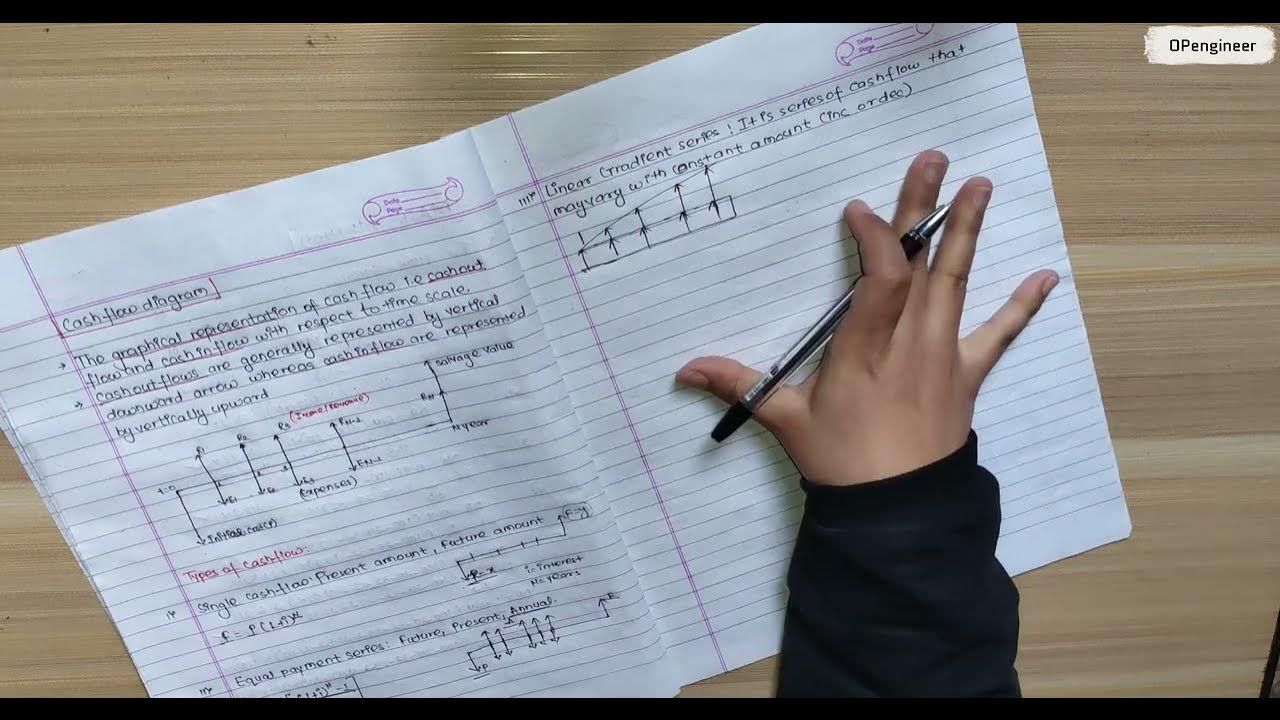 OPengineer
Date
Page
Cashflow diagram
→ The graphical representation of cash flow i.e cashout
flow and cashinflow with respect to time scale.
→ Cashoutflows are generally represented by vertical
downward arrow whereas cashinflow are represented
by vertically upward
Salvage value
R1 R2 R3 (Income/revenue) RN-1 RN
N year
t=0
E1 E2 E3 EN-1
(Expenses)
Initial cost(P)
Types of cashflow:
i) Single cashflow: Present amount, Future amount
F=y
P=x
i=interest
N=years
F = P(1+i)^N
Equal payment series: Future, Present, Annual.
A
F
P
Date
Page
iii) Linear Gradient series: It is series of cashflow that
may vary with constant amount (inc or dec)